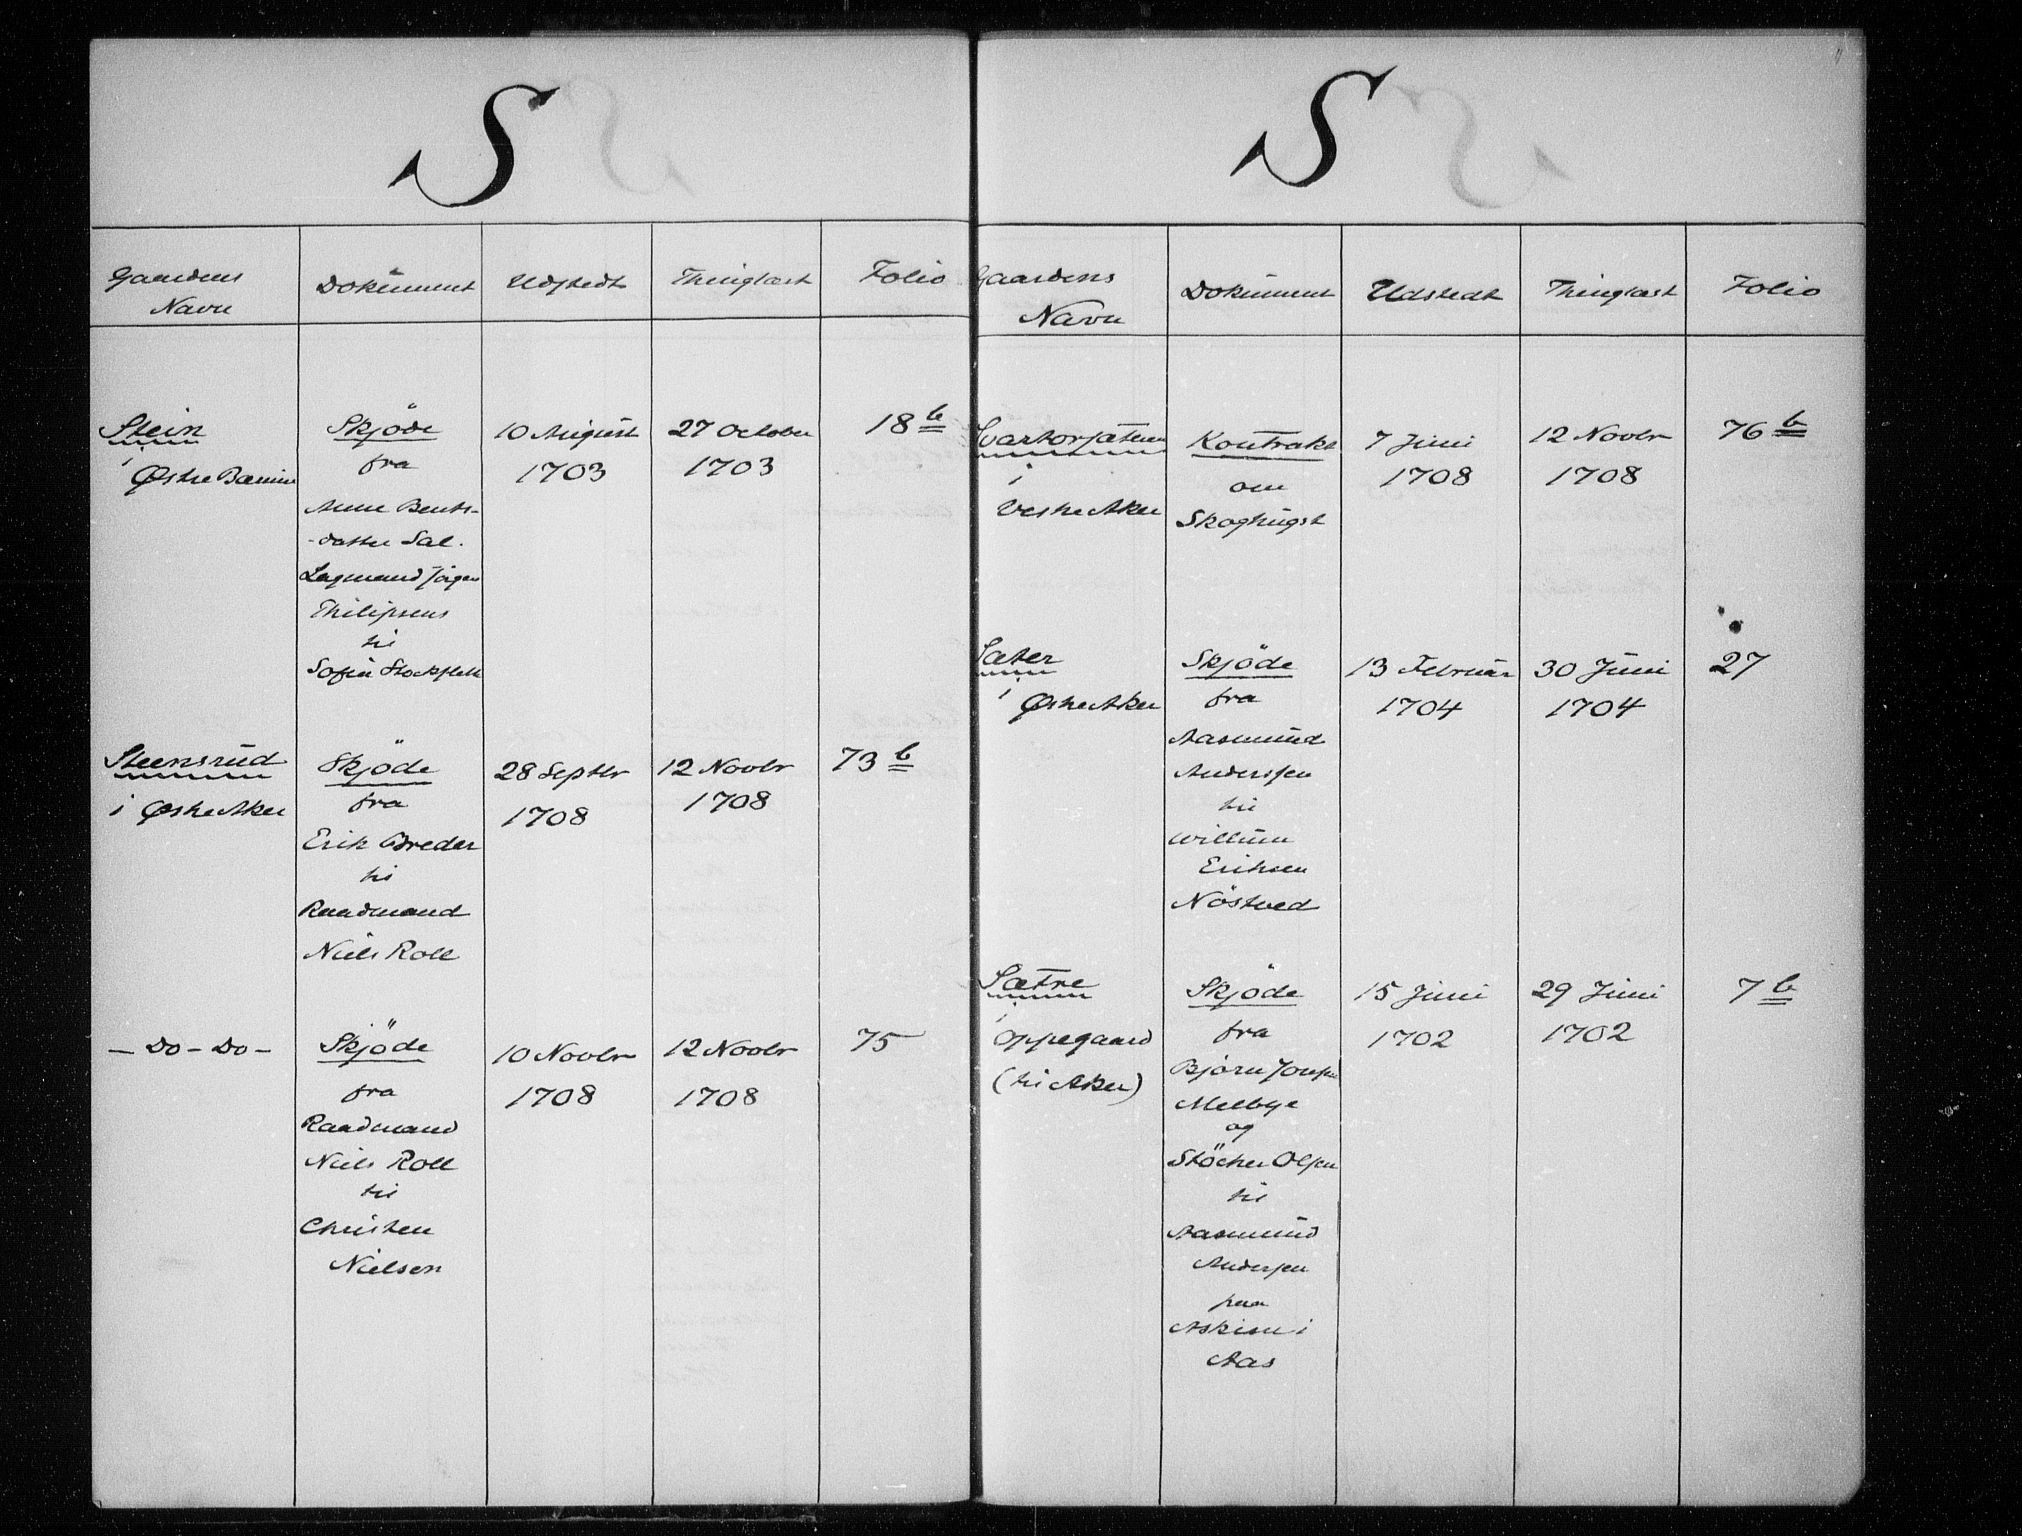 S
Gaardens Navn
Dokument
Udstedt
Thinglæst
Folio
Stein
i
Østre Bærum
Skjøde
fra
Anne Bents-
-datter Sal.
Lagmand Jörgen
Philipsens
til
Sofia Stockfleth
10 August
1703
27 October
1703
18 b
Steensrud
i Østre Aker
Skjøde
fra
Erik Breder
til
Raadmand
Niels Roll
28 Septbr
1708
12 Novbr
1708
73 b
- Do - Do -
Skjøde
fra
Raadmand
Niels Roll
til
Christen
Nielsen
10 Novbr
1708
12 Novbr
1708
75
S
Gaardens
Navn
Dokument
Udstedt
Thinglæst
Folio
i
Vestre Aker
Kontrakt
om
Skoghugst
7 Juni
1708
12 Novbr
1708
76 b
Sæter
i Østre Aker
Skjøde
fra
Aasmund
Anderssen
til
Willum
Eriksen
Nöstved
13 Februar
1704
30 Juni
1704
27
Sætre
i
Oppegaard
(til Aker)
Skjøde
fra
Bjørn
Melbye
og
Olsen
til
Aasmund
Andersen
paa
Askim i
Aas
15 Juni
1702
29 Juni
1702
7 b